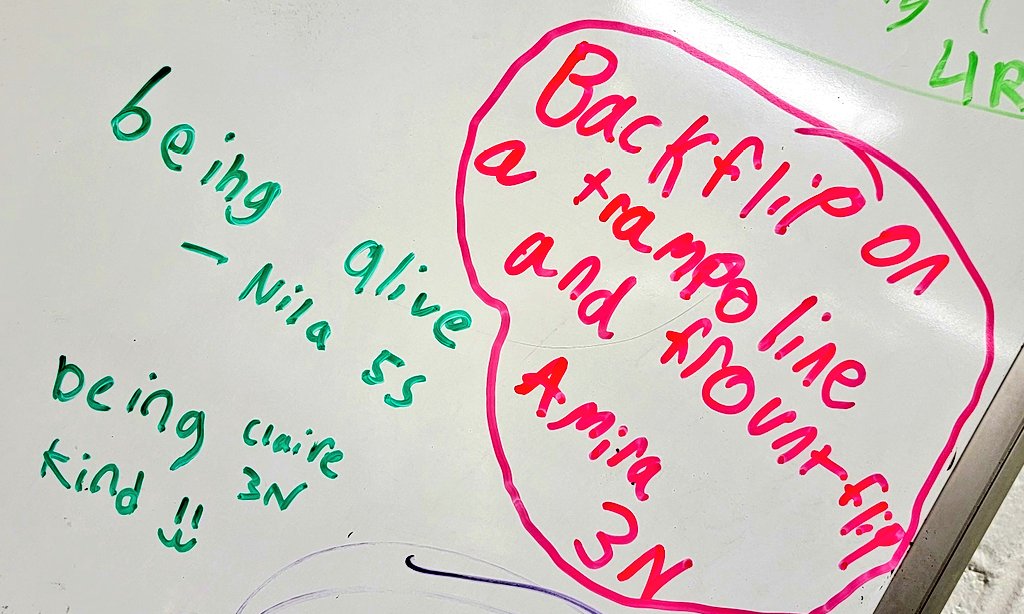 being alive
- Nila 5S
being
kind
claire
3N
Backflip on
a trampoline
and frount-flip
Amira
3N
4R